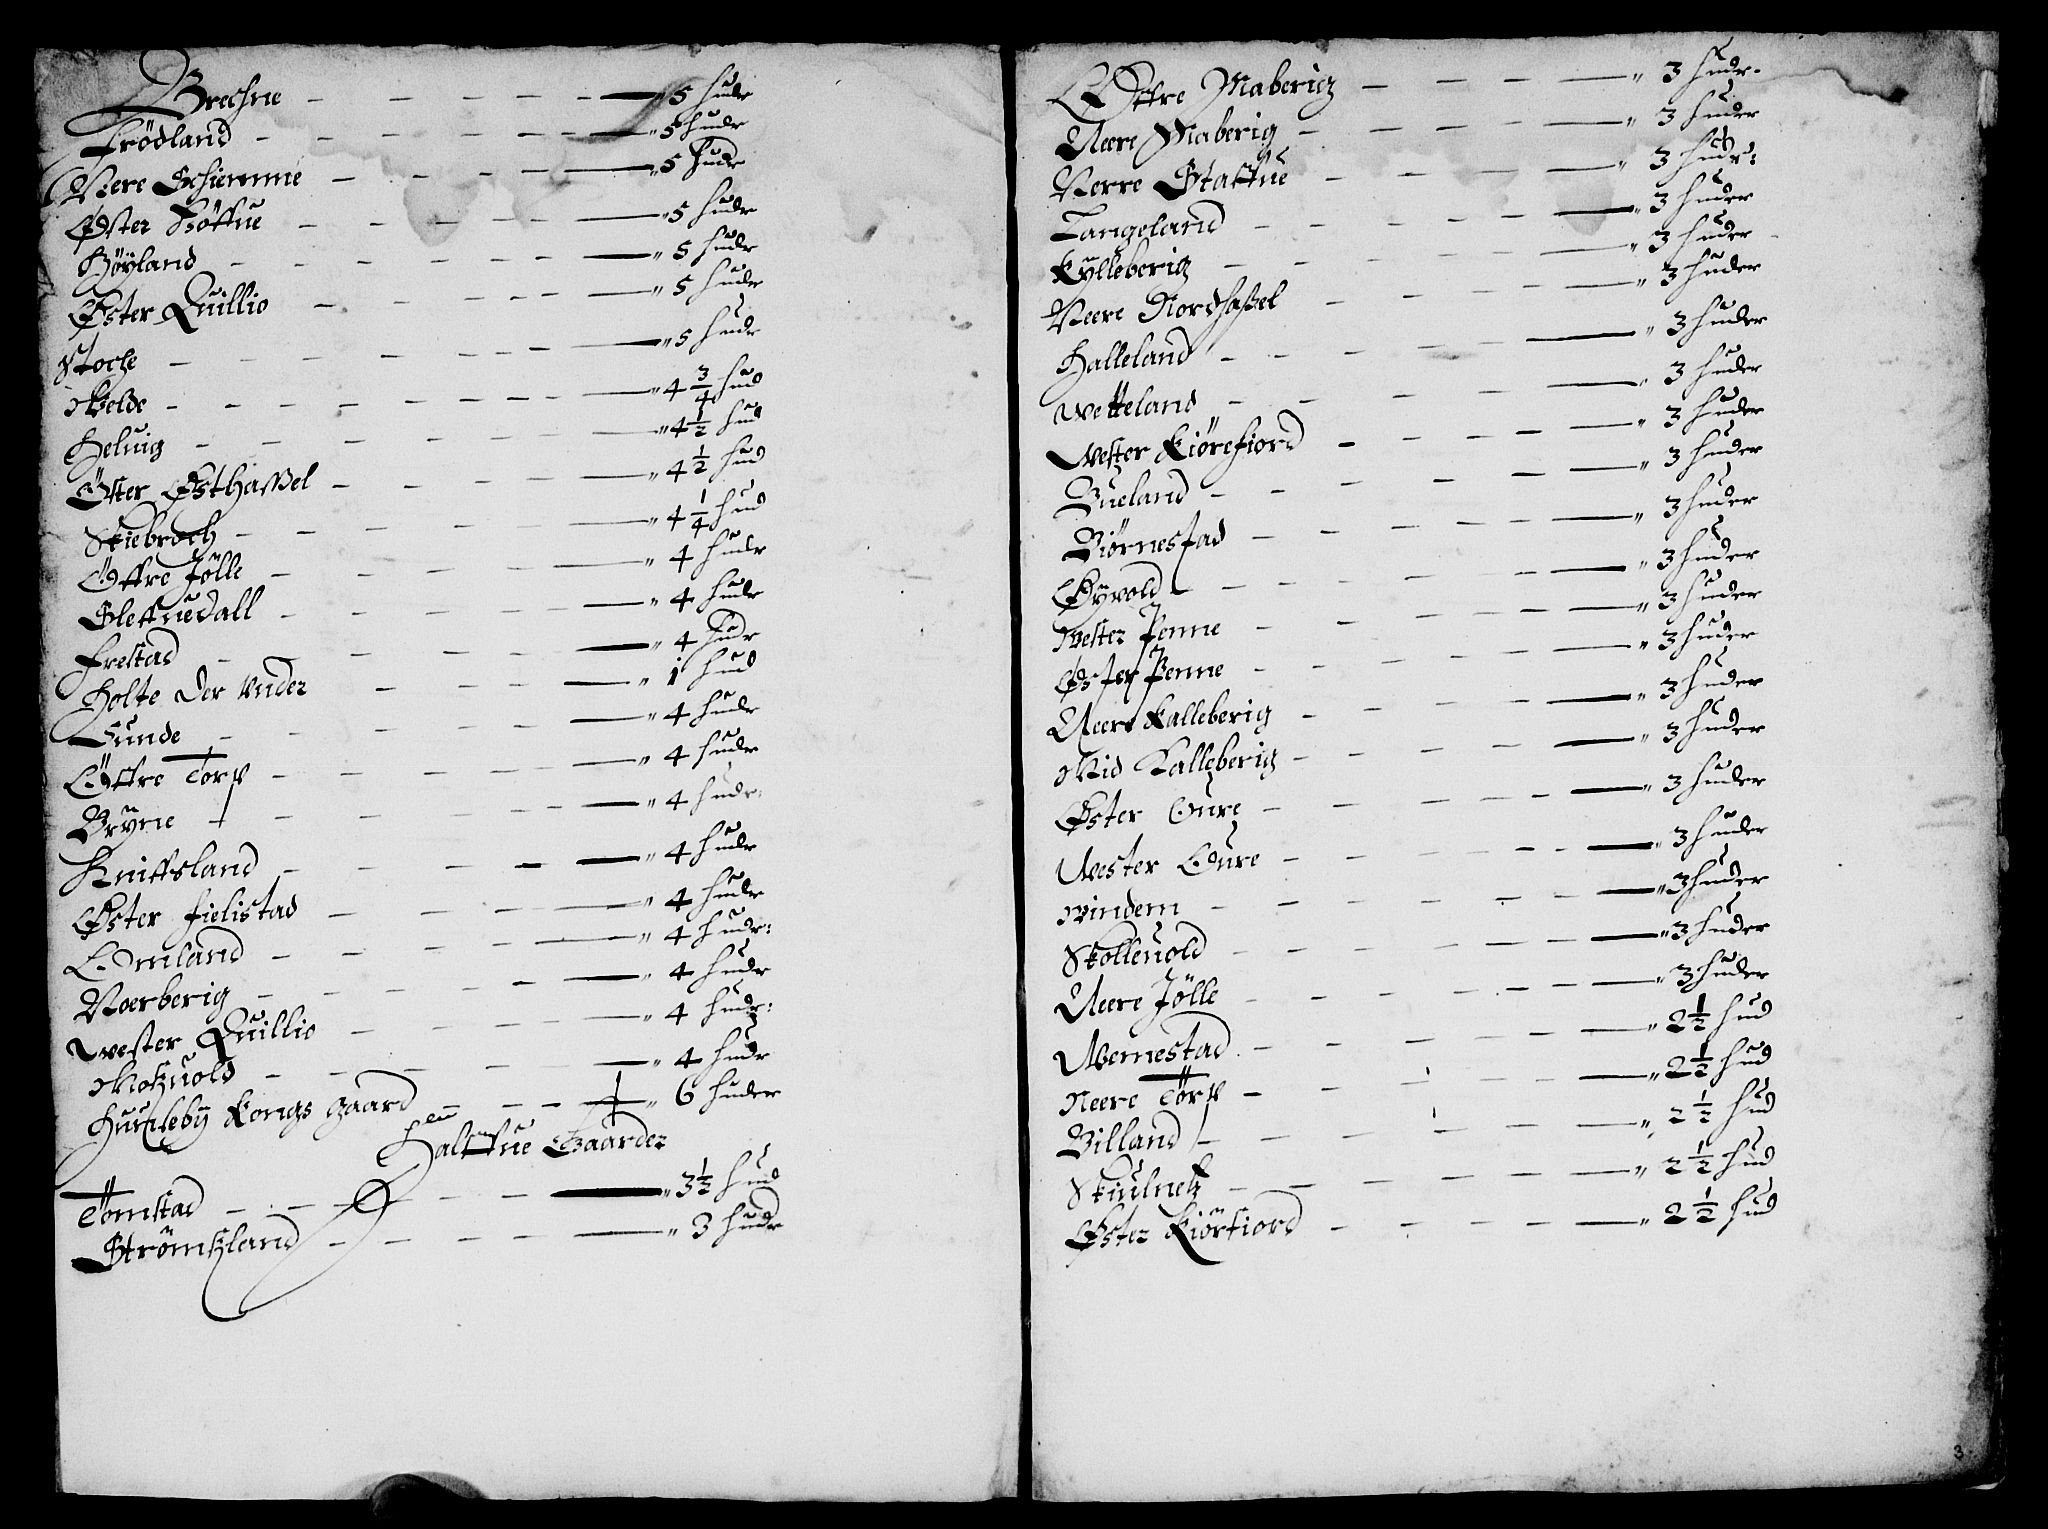 Brechne — 5 hudr
Frödland — 5 hudr
Nere Schiemme — 5 hudr
Øster Höffue — 5 hudr
Höyland — 5 hudr
Øster Quillio — 5 hudr
Stoche — 5 hudr
Melde — 4 3/4 hud
Heluig — 4 1/2 hud
Öster Østhassel — 4 1/2 hud
Skiebroch — 4 1/4 hud
Öffre Jölle — 4 hudr
Sleffuedall — 4 hudr
Frestad — 4 hudr
Holte der vnder — 1 hud
Lunde — 4 hudr
Öffre Torp — 4 hudr
Bryne — 4 hudr:
Kniffsland — 4 hudr
Øster Fielistad — 4 hudr
Omland — 4 hudr:
Noerberig — 4 hudr
Wester Quillio — 4 hudr:
Mosuold — 4 hudr
Huusleby Kongs gaard — 6 huder
Halffue Gaarder
Tömstad — 3 1/2 hud
Strömsland — 3 hudr
Öffre Maberig — 3 hudr.
Neere Maberig — 3 huder
Nerre Staffue — 3 hudr:
Langeland — 3 huder
Kylleberig — 3 huder
Neere Nordhassel — 3 huder
Halleland — 3 huder
Wetteland — 3 huder
Wester Kiörefiord — 3 huder
Bueland — 3 huder
Biörnestad — 3 huder
Øyvold — 3 huder
Wester Penne — 3 huder
Øster Penne — 3 huder
Neere Kalleberig — 3 huder
Mid Kalleberig — 3 huder
Øster Oure — 3 huder
Wester Oure — 3 huder
Vindem — 3 huder
Skolleuold — 3 huder
Neere Jölle — 3 huder
Wemestad — 2 1/2 hud
Neere Törp — 2 1/2 hud
Billand — 2 1/2 hud
Skiulnes — 2 1/2 hud
Øster Kiörfiord — 2 1/2 hud
3